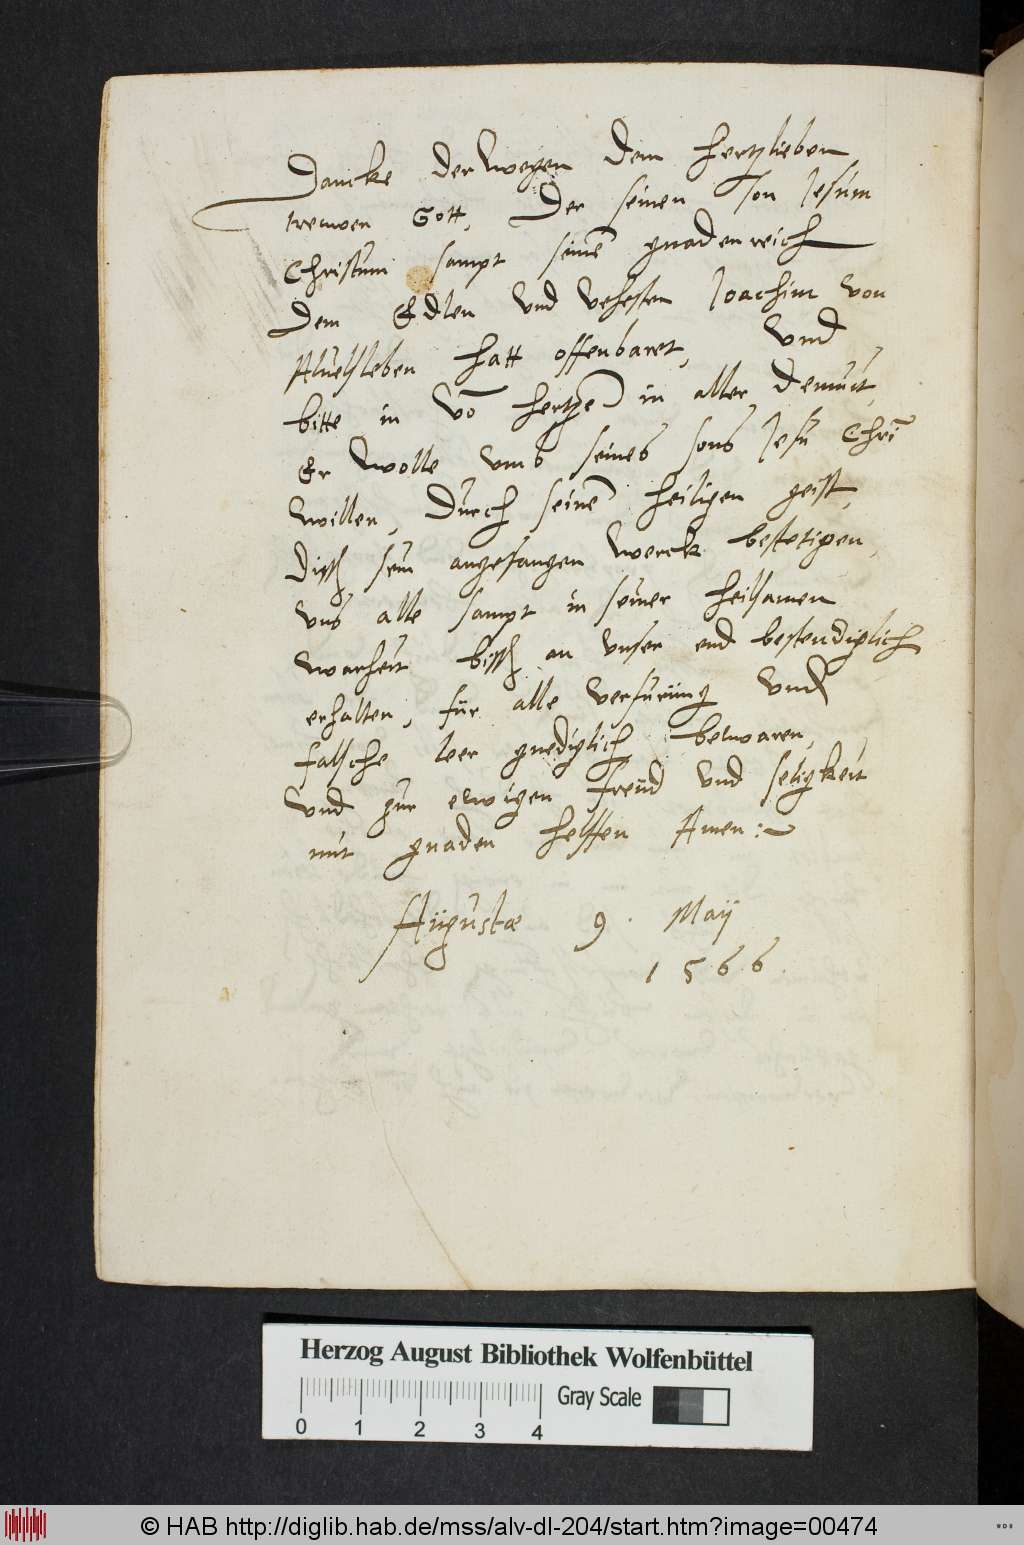 Dancke derwegen dem hertzlieben
trewen Gott, Der seinen son Jesum
Christum sampt seinē gnadenreich
Dem Edlen vnd vehesten Joachim von
Aluesleben hatt offenbaret, vnd
bitte in vō hertzē in aller demut,
Er wolle vmb seines sons Jesu Chrī
willen, durch seinē heiligen geist,
diss sein angefangen werck bestetigen,
vns alle sampt in seiner heilsamen
warheit biss an vnser end bestendiglich
erhalten, für alle verfurung vnd
falsche leer gnediglich bewaren,
vnd zur ewigen freud vnd seligkeit
mit gnaden helffen Amen:~
Augustae 9. Maij
1566.
Herzog August Bibliothek Wolfenbüttel
0 1 2 3 4 Gray Scale
© HAB http://diglib.hab.de/mss/alv-dl-204/start.htm?image=00474